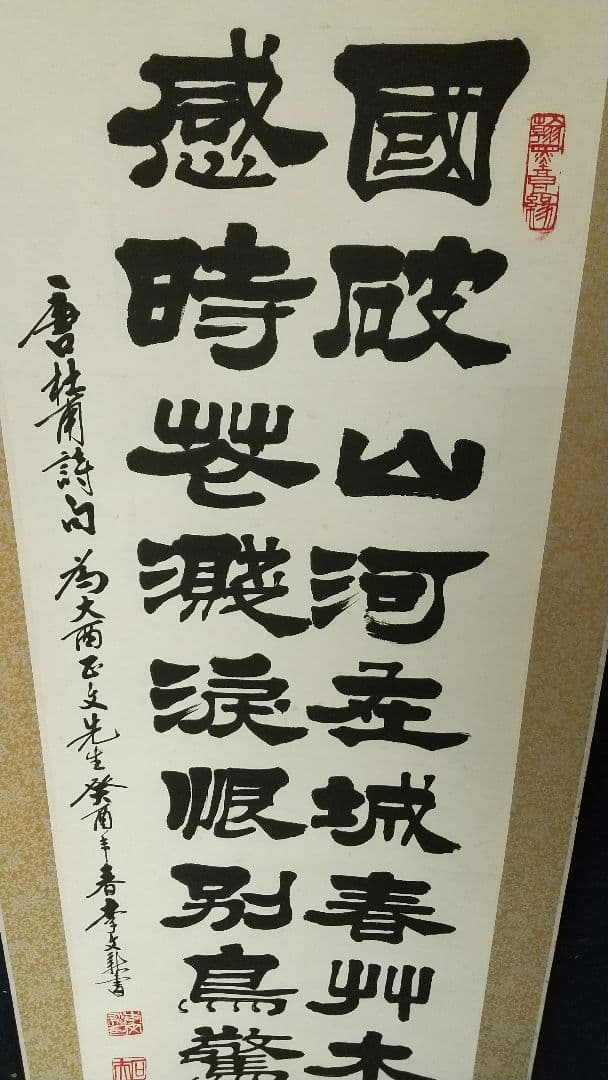 翰墨因緣
國破山河在城春艸木
感時花濺淚恨别鳥驚
唐杜甫詩句 為大西正文先生 癸酉年春李文書